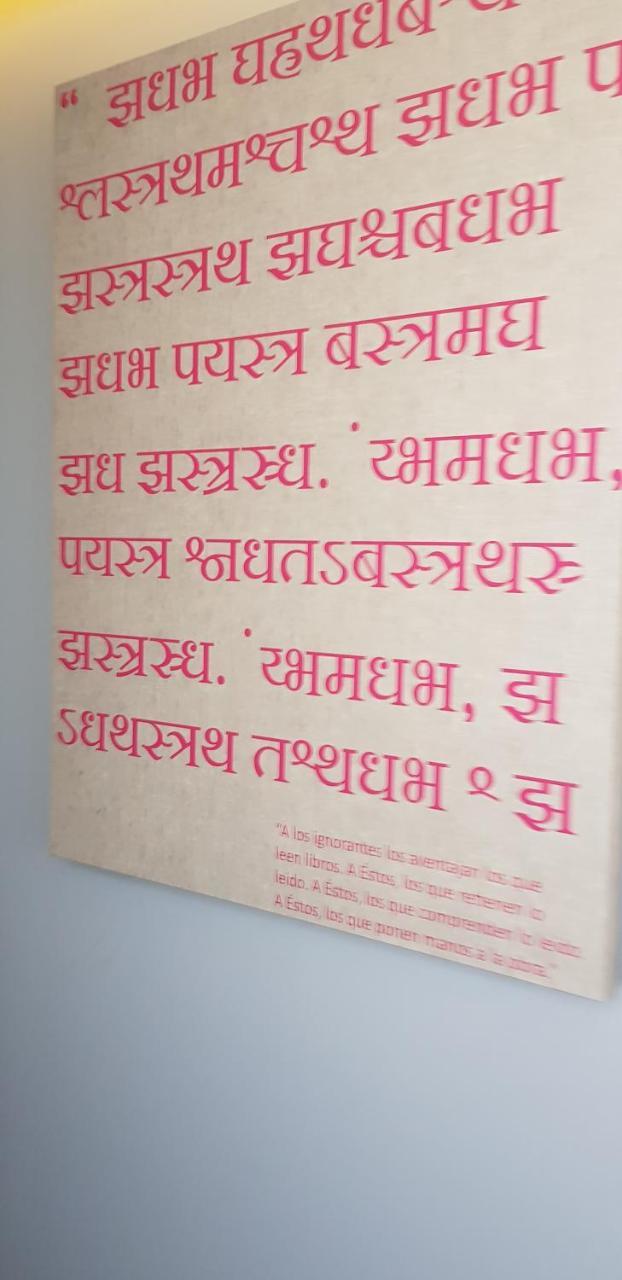 “ झधभ घहथधब
श्लस्त्रथमश्चश्थ झधभ प
झस्त्रस्त्रथ झघश्चबधभ
झधभ पयस्त्र बस्त्रमघ
झध झस्त्रस्ध. ं य्भमधभ,
पयस्त्र श्नधतऽबस्त्रथरु
झस्त्रस्ध. ं य्भमधभ, झ
ऽधथस्त्रथ तश्थधभ श् झ
“A los ignorantes los aventajan los que
leen libros. A Éstos, los que retienen lo
leído. A Éstos, los que comprenden lo leído.
A Éstos, los que ponen manos a la obra.”